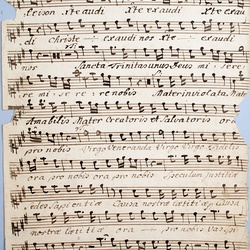 eleison xte exaudi xte exaudi
di Christe exaudi nos xte exaudi
nos Sancta Trinitas unus Deus mi sere
re mi se re re nobis Mater inviolata Mater
Amabilis Mater Creatoris et Salvatoris ora
pro nobis Virgo Veneranda Virgo Virgo
ora ora pro nobis Speculum justitiae
sedes Sapientiae Causa nostrae laetitiae Causa
nostrae laetitiae ora pro nobis